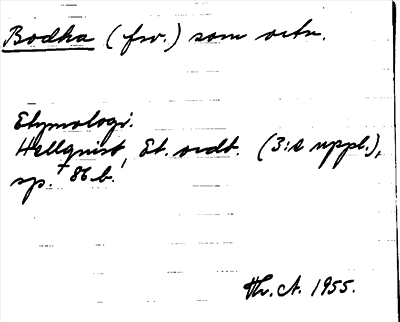 Bodha (fsv.) som ortn.
Etymologi.
Hellquist, Et. ordb. (3:e uppl.),
sp. 86 b.
1955.